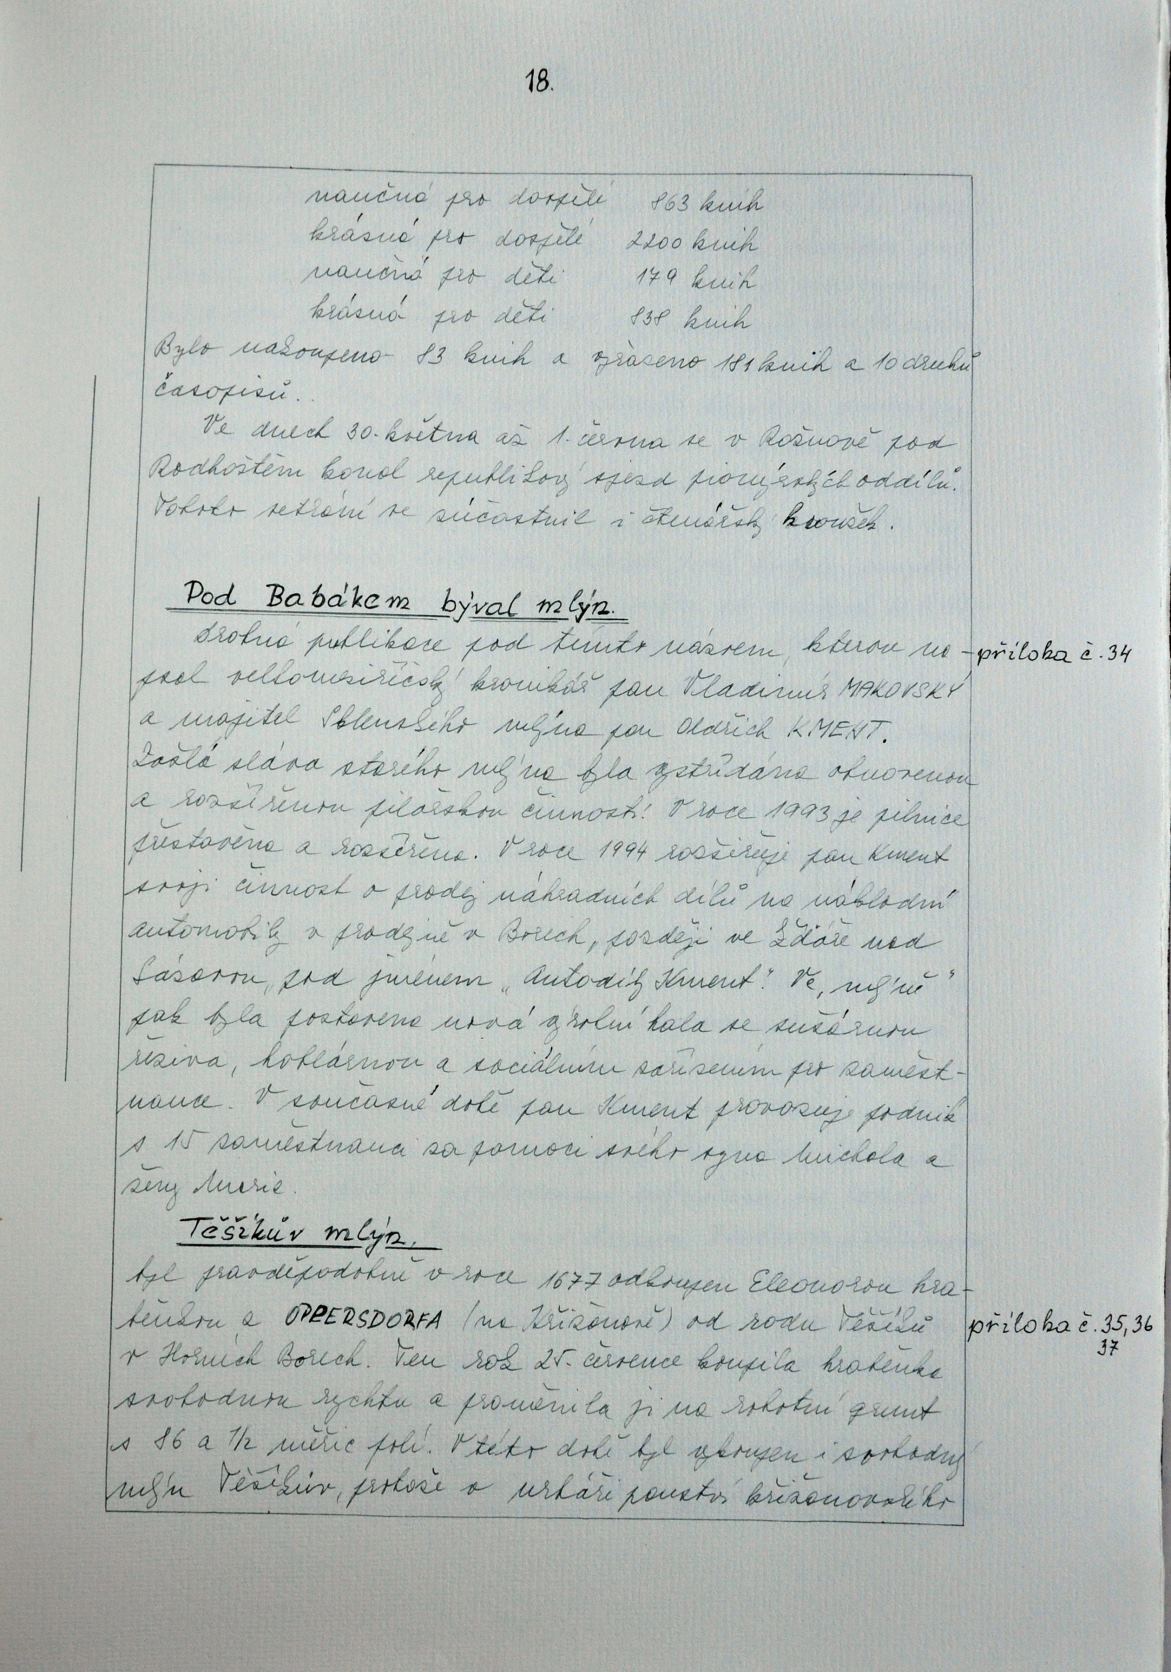 18.
naučná pro dospělé 863 knih
krásná pro dospělé 2200 knih
naučná pro děti 179 knih
krásná pro děti 838 knih
Bylo nakoupeno 83 knih a vyřazeno 181 knih a 10 druhů
časopisů.
Ve dnech 30. května až 1. června se v Rožnově pod
Radhoštěm konal republikový sjezd pionýrských oddílů.
Tohoto setkání se zúčastnil i čtenářský kroužek.
Pod Babákem býval mlýn.
Drobná publikace pod tímto názvem, kterou na-
příloha č. 34
psal velkomeziříčský kronikář pan Vladimír MAKOVSKÝ
a majitel mlýna pan Oldřich KMENT.
Zašlá sláva starého mlýna byla vystřídána obnovenou
a rozšířenou pilařskou činností. V roce 1993 je pilnice
přestavěna a rozšířena. V roce 1994 rozšiřuje pan Kment
svoji činnost o prodej náhradních dílů na nákladní
automobily v prodejně v Borech, později ve Žďáře nad
Sázavou, pod jménem „Autodíly Kment". Ve „mlýně"
pak byla postavena nová výrobní hala se sušárnou
řeziva, hoblárnou a sociálním zařízením pro zaměst-
nance. V současné době pan Kment provozuje podnik
s 15 zaměstnanci za pomoci svého syna Michala a
ženy Marie.
Těšíkův mlýn.
byl pravděpodobně v roce 1677 odkoupen Eleonorou hra-
běnkou z OPPERSDORFA (na Křižanově) od rodu Těšíků
příloha č. 35, 36
37
v Horních Borech. Ten rok 25. července koupila hraběnka
svobodnou rychtu a proměnila ji na robotní grunt
s 86 a 1/2 měřic polí. V této době byl vykoupen i svobodný
mlýn Těšíkův, protože v urbáři panství křižanovského